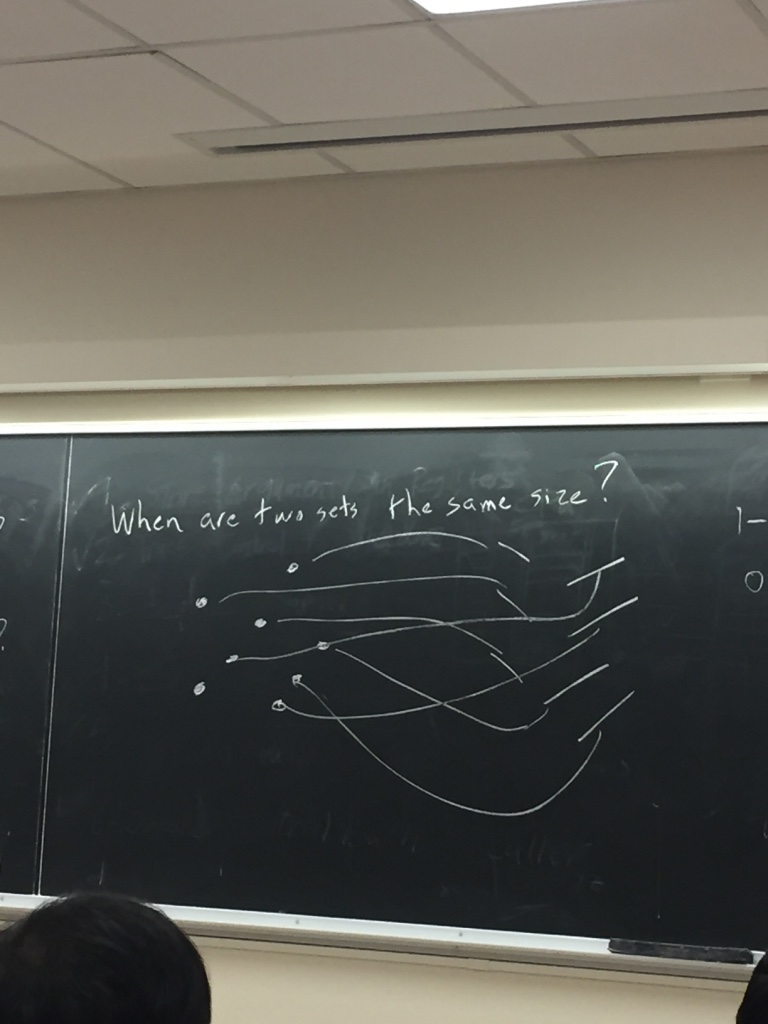 When are two sets the same size?
1-
0